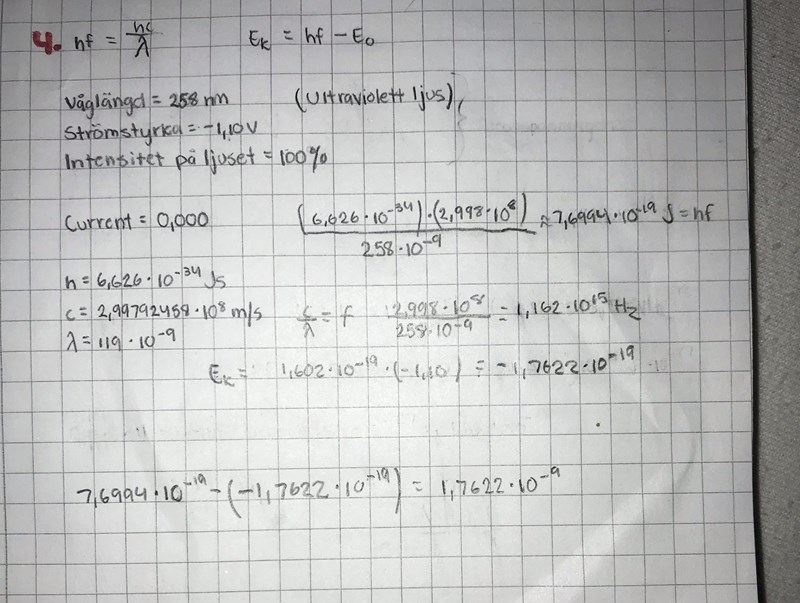 4. hf = hc/λ    E_k = hf - E_0
Våglängd = 258 nm    (Ultraviolett ljus),
Strömstyrka = -1,10 V
Intensitet på ljuset = 100%
Current = 0,000    (6,626·10^-34)·(2,998·10^8)/258·10^-9 ≈ 7,6994·10^-19 J = hf
h = 6,626·10^-34 Js
c = 2,99792458·10^8 m/s    c/λ = f    2,998·10^8/258·10^-9 = 1,162·10^15 Hz
λ = 119·10^-9
E_k = 1,602·10^-19·(-1,10) = -1,7622·10^-19
7,6994·10^-19 - (-1,7622·10^-19) = 1,7622·10^-9